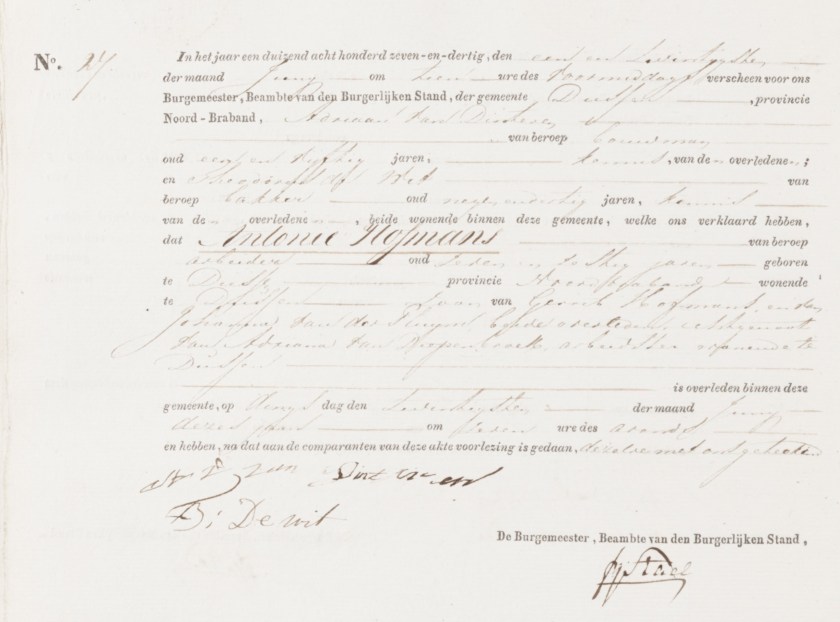 No. 27 In het jaar een duizend acht honderd zeven-en-dertig, den een en twintigsten
der maand Juny om tien ure des voormiddags verscheen voor ons
Burgemeester, Beambte van den Burgerlijken Stand, der gemeente Dussen, provincie
Noord-Braband, Adriaan van
van beroep bouwman
oud een en vyftig jaren, kennis, van de overledene;
en de Wit van
beroep bakker oud negen en dertig jaren, kennis
van de overledene, beide wonende binnen deze gemeente, welke ons verklaard hebben,
dat Antonie Hofmans van beroep
arbeider oud zeven en jaren geboren
te Dussen provincie Noordbraband wonende
te Dussen zoon van Gerrit Hofmans en van
Johanna van de beide overleden, echtgenoot
van Adriana van Diepenbroek, arbeidster wonende te
Dussen
is overleden binnen deze
gemeente, op dings dag den twintigsten der maand Juny
dezes jaars om zeven ure des avonds
en hebben, na dat aan de comparanten van deze akte voorlezing is gedaan, dezelve met ons geteekend
A v
T: De wit
De Burgemeester, Beambte van den Burgerlijken Stand,
Stael